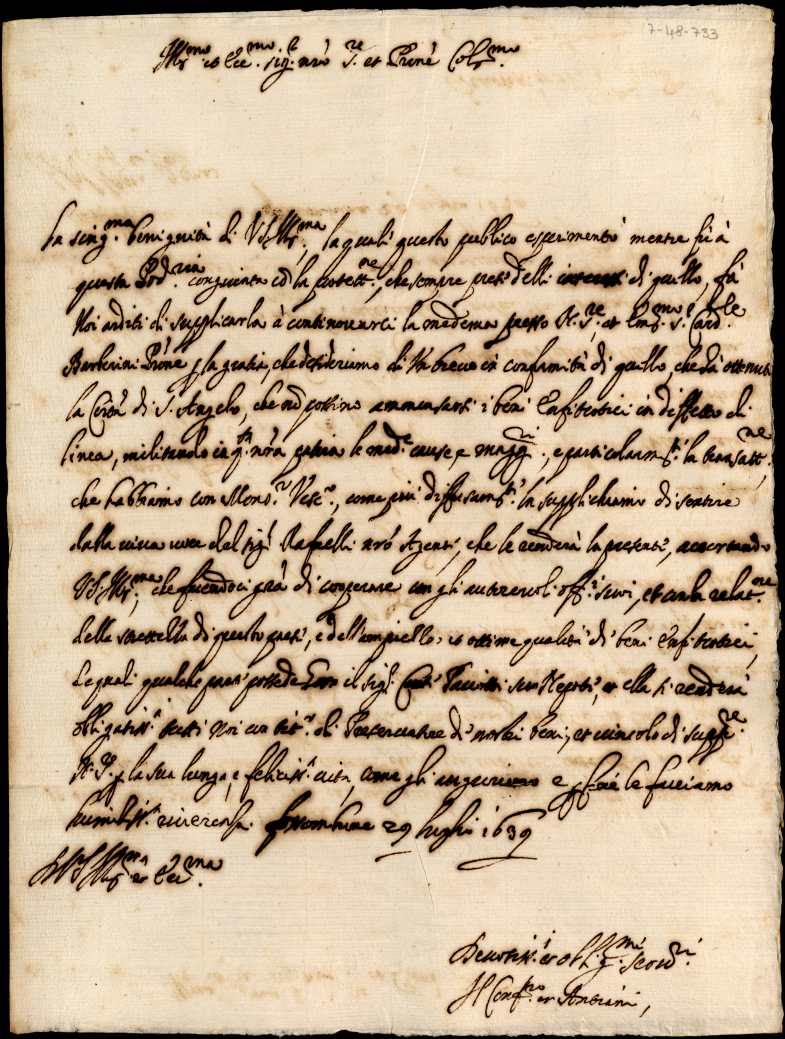 7-48-733
Ill.mo et Ecc.mo sig.r nrô S.re et Prone Col.mo
La sing.ma benignità di V.S. Ill.ma, la quali questo publico esperimentò mentre fù à
questa Pod.ria congiunta cô la protett.ne, che sempre prese delli interessi di quello, fà
Noi arditi di supplicarla à continovarci la medema presso N. S.re, et Em.mo S.r Card.le
Barberini Prone p la gratia, che desideriamo di Un breve in conformità di quello, che hà ottenuto
la Città di S. Angelo, che nô possino ammensarsi i beni Enfiteotici in diffetto di
linea, militando in q.ta nrâ patria le med.e cause, e magg.ri, e particolarm.te la transatt.ne,
che habbiamo con Mons.r Vesc.o, come più diffusam.te la supplichiamo di sentire
dalla viva voce del sig.r Rafaelli nrô Agente, che le renderà la presente, accertando
V.S. Ill.ma, che facendoci grâ di cooperare con gli autorevoli off.i suoi, et con la relat.ne
della strettezza di questo paese, e dell' et ottime qualità di beni Enfiteotici,
de quali qualche parte possede il sig.r Conte suo Nepote, et ella ci renderà
obligatiss.i tutti Noi con tit.o di Preservatore de nostri beni, et vincolo di supp.re
N. S. p la sua lunga, e feliciss.a vita, come gli auguriamo e p fine le facciamo
humiliss.a riverenza. fossombrone 29 luglio 1639
Di V.S. Ill.ma et Ecc.ma
Devotiss.i et obl.mi Servi.ri
Il Conf.ro et Antiani,